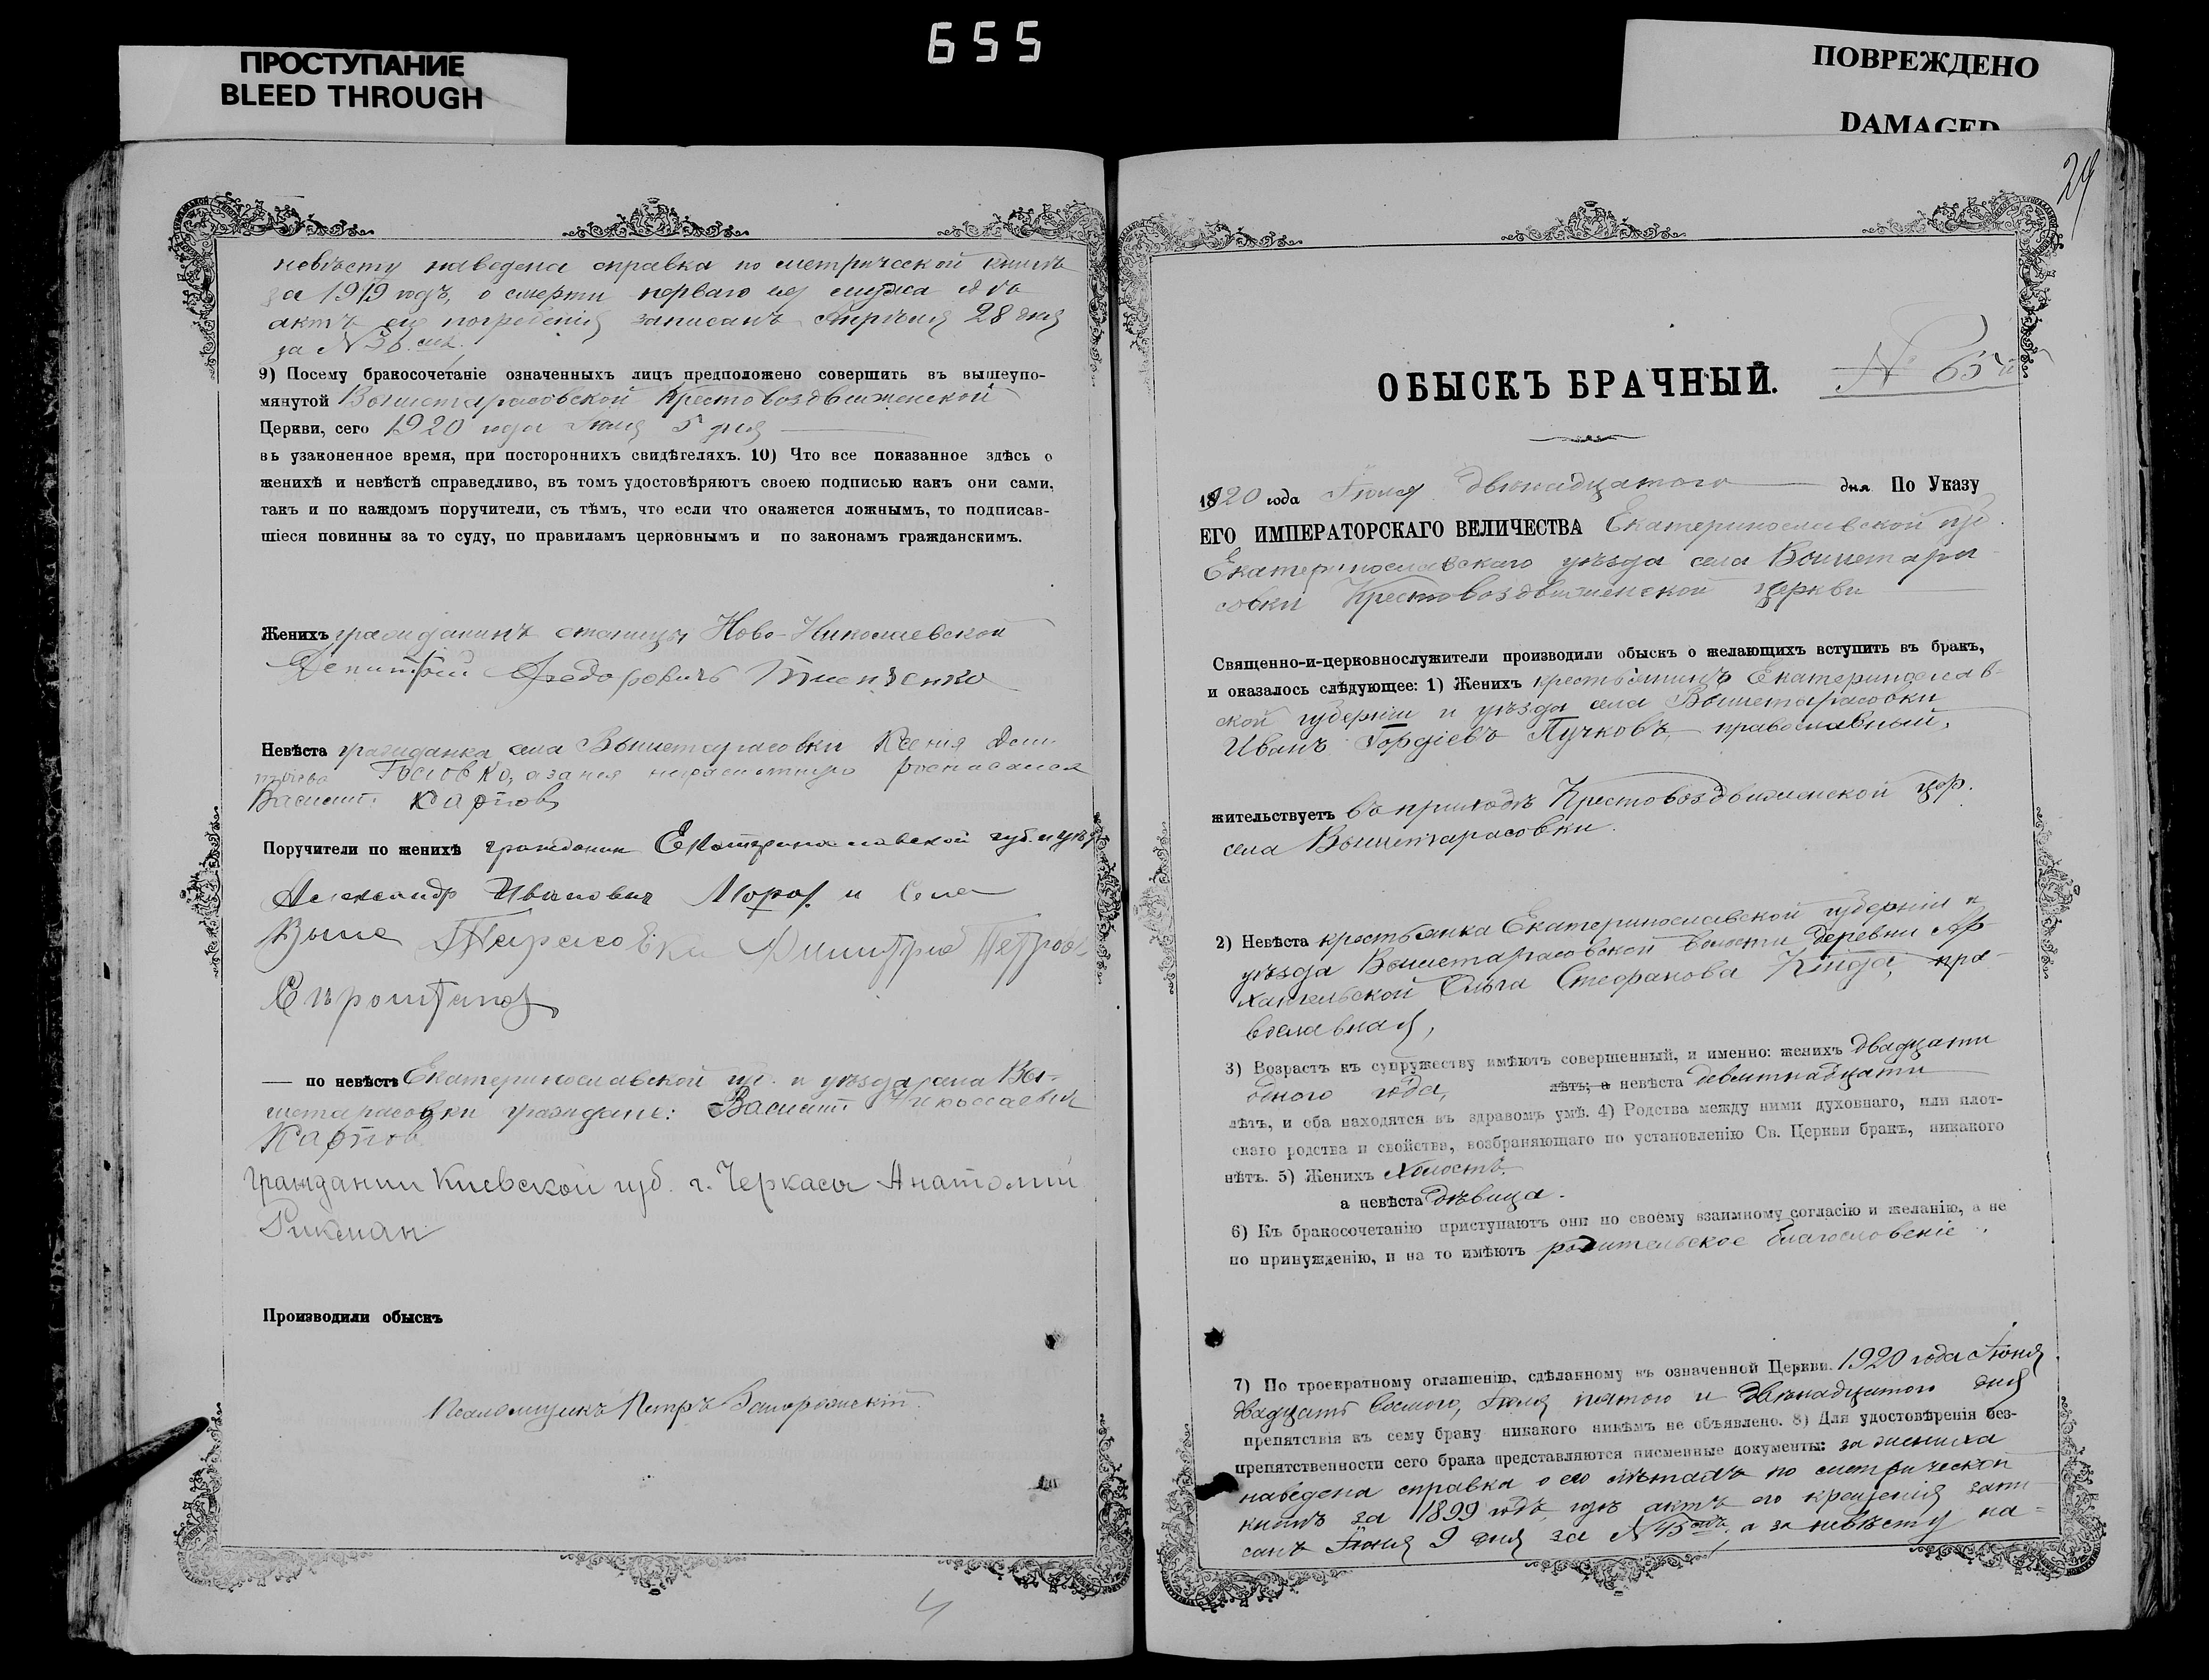 655
ПРОСТУПАНИЕ
BLEED THROUGH
ПОВРЕЖДЕНО
DAMAGED
невѣсту наведена справка по метрической книгѣ
за 1919 годъ, о смерти перваго ея мужа
актъ его погребенія записанъ Апрѣля 28 дня
за №
9) Посему бракосочетаніе означенныхъ лицъ предположено совершить въ вышеупо-
мянутой Вышетарасовской Крестовоздвиженской
Церкви, сего 1920 года Іюля 5 дня
въ узаконенное время, при постороннихъ свидѣтеляхъ. 10) Что все показанное здѣсь о
женихѣ и невѣстѣ справедливо, въ томъ удостовѣряютъ своею подписью какъ они сами,
такъ и по каждомъ поручители, съ тѣмъ, что если что окажется ложнымъ, то подписав-
шіеся повинны за то суду, по правиламъ церковнымъ и по законамъ гражданскимъ.
Женихъ гражданинъ станицы Ново-Николаевской
Федоровичъ
Невѣста гражданка села Вышетарасовки Ксенія
а за нея неграмотную росписался
Василий Карпов
Поручители по женихѣ гражданин Екатеринославской губ. и уѣз
Александр Иванович Мороз и Села
Выше Тарасовки Димитрий Петров
Сиротин
— по невѣстѣ Екатеринославской губ. и уѣзда села Вы-
шетарасовки граждане: Василий Николаевич
Карпов
Гражданин Киевской губ. г. Черкасы Анатолий
Рикман
Производили обыскъ
Псаломщикъ Петръ Запорожскій.
29
ОБЫСКЪ БРАЧНЫЙ.
№ 65й
1920 года Іюля двѣнадцатого дня По Указу
ЕГО ИМПЕРАТОРСКАГО ВЕЛИЧЕСТВА Екатеринославской губ.
Екатеринославскаго уѣзда села Вышетара-
совки Крестовоздвиженской церкви
Священно-и-церковнослужители производили обыскъ о желающихъ вступить въ бракъ,
и оказалось слѣдующее: 1) Женихъ крестьянинъ Екатеринослав-
ской губерніи и уѣзда села Вышетарасовки
Иванъ Гордіевъ Пучковъ, православный,
жительствуетъ въ приходѣ Крестовоздвиженской цер.
села Вышетарасовки.
2) Невѣста крестьянка Екатеринославской губерніи и
уѣзда Вышетарасовской волости деревни Ар
хангельской Ольга Стефанова пра-
вославная,
3) Возрастъ къ супружеству имѣютъ совершенный, и именно: женихъ двадцати
одного года, лѣтъ; а невѣста девятнадцати
лѣтъ, и оба находятся въ здравомъ умѣ. 4) Родства между ними духовнаго, или плот-
скаго родства и свойства, возбраняющаго по установленію Св. Церкви бракъ, никакого
нѣтъ. 5) Женихъ холостъ.
а невѣста дѣвица.
6) Къ бракосочетанію приступаютъ они по своему взаимному согласію и желанію, а не
по принужденію, и на то имѣютъ родительское благословеніе.
7) По троекратному оглашенію, сдѣланному въ означенной Церкви 1920 года Іюня
двадцать восьмого, Іюля пятого и двѣнадцатого дня
препятствія къ сему браку никакого никѣмъ не объявлено. 8) Для удостовѣренія без-
препятственности сего брака представляются писменные документы: за жениха
наведена справка о его лѣтахъ по метрической
книгѣ за 1899 годъ, гдѣ актъ его крещенія запи
санъ Іюня 9 дня за № а за невѣсту на-